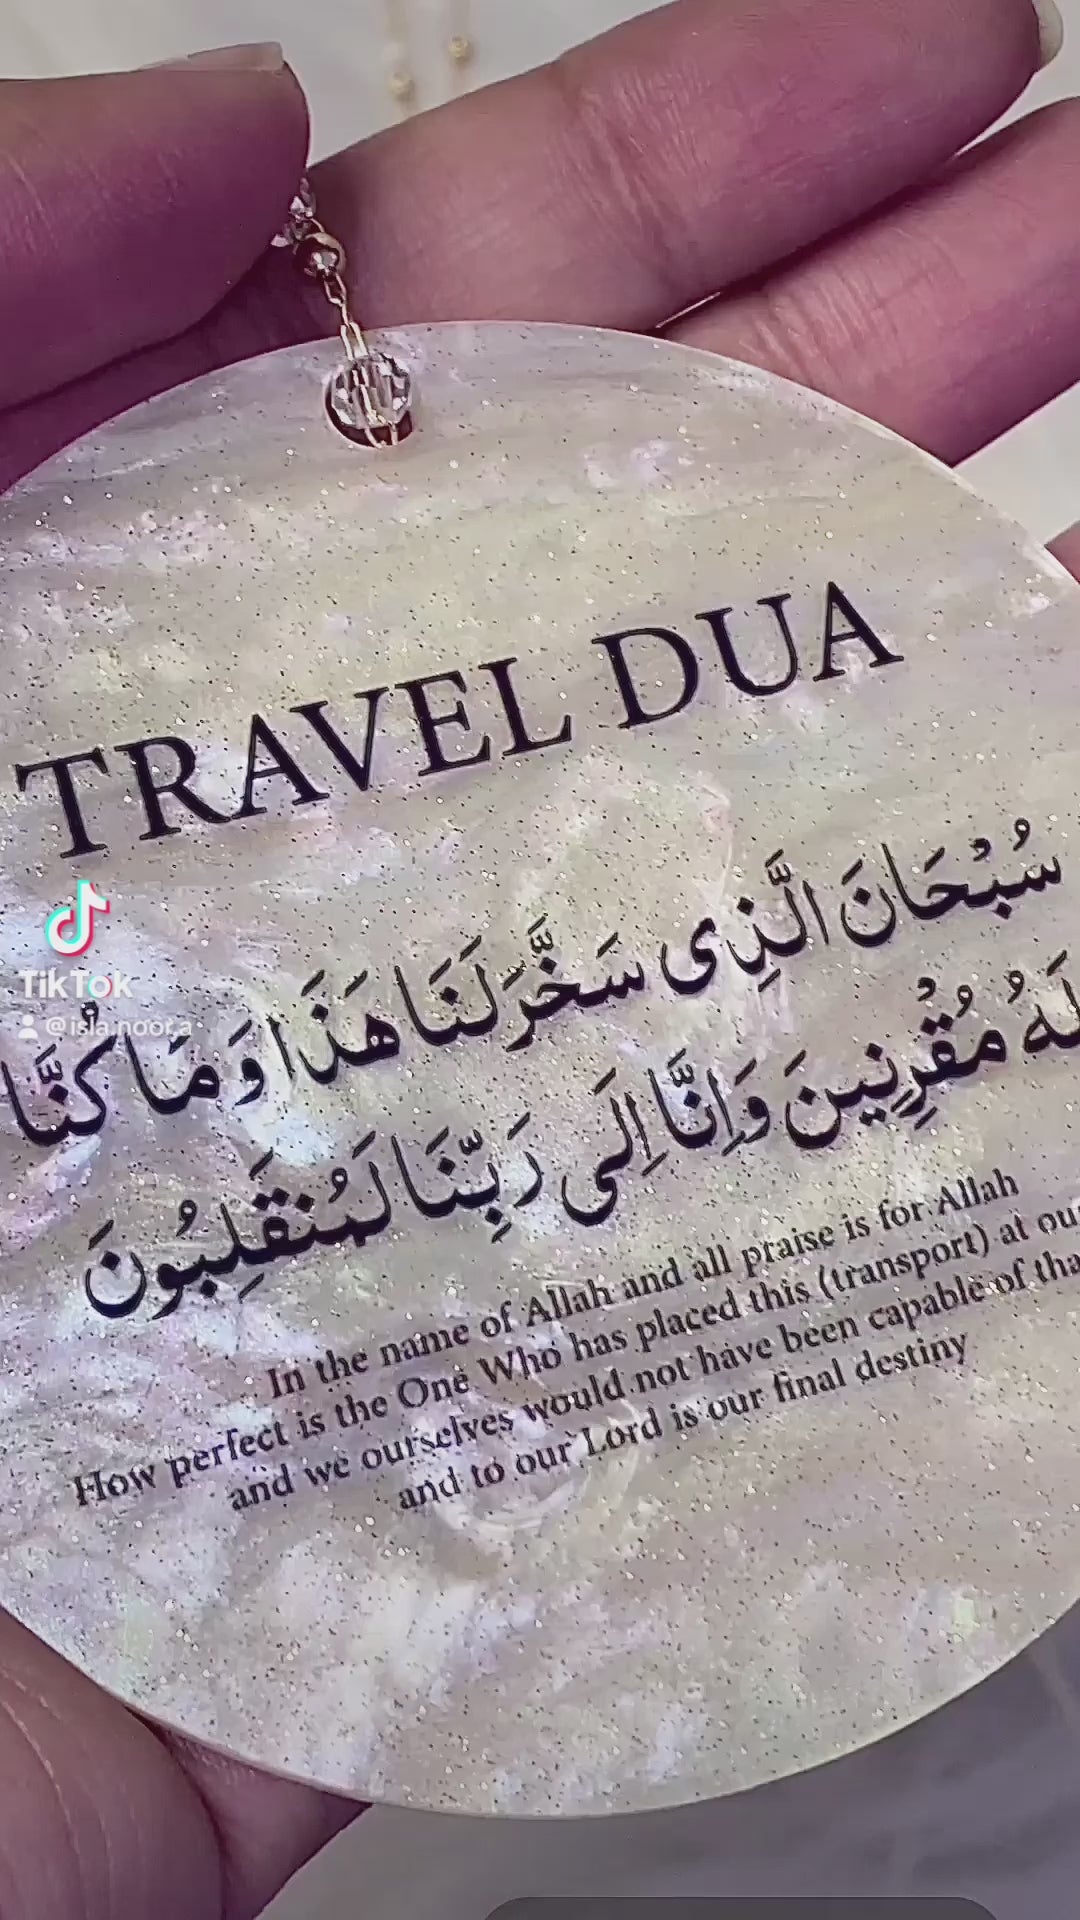 TRAVEL DUA
سُبْحَانَ الَّذِى سَخَّرَ لَنَا هَذَا وَمَا كُنَّا
لَهُ مُقْرِنِينَ وَاِنَّا اِلَى رَبِّنَا لَمُنْقَلِبُونَ
In the name of Allah and all praise is for Allah
How perfect is the One Who has placed this (transport) at our
and we ourselves would not have been capable of that
and to our Lord is our final destiny
TikTok
@isla.noor.a